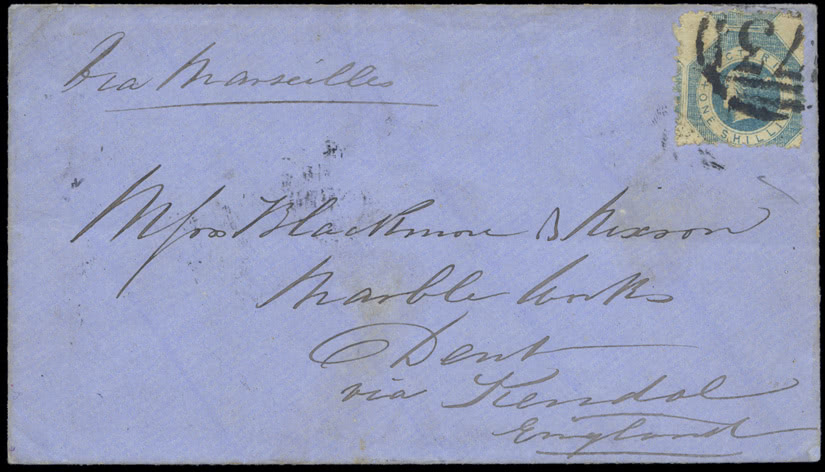 Via Marseilles
Messrs Blackmore & Nixson
Marble Works
Dent
via Kendal
England
ONE SHILLI